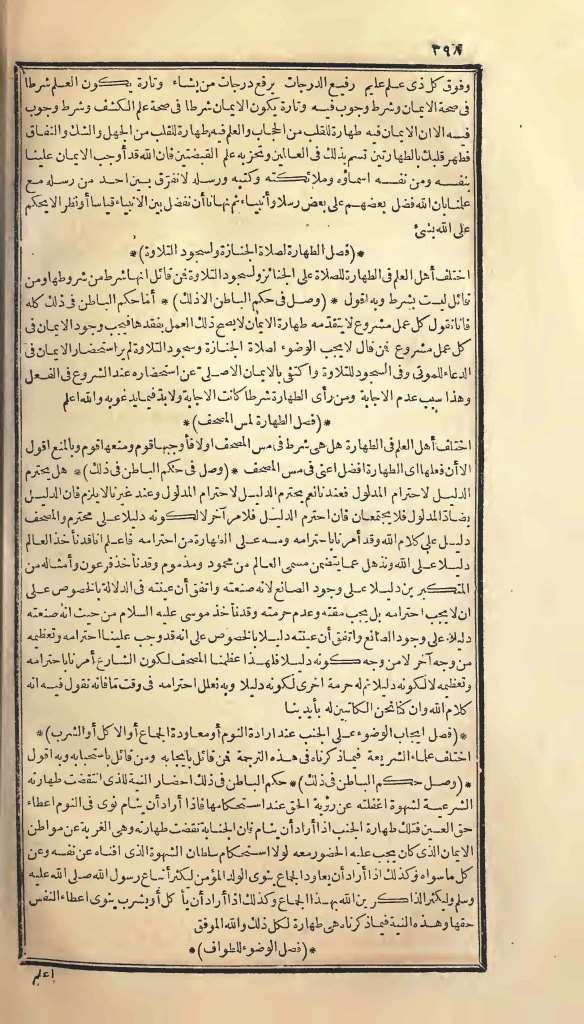 ٣٩٨
وفوق كل ذى علم عليم رفيع الدرجات يرفع درجات من يشاء وتارة يكون العلم شرطا
فى صحة الايمان وشرط وجوب فيه وتارة يكون الايمان شرطا فى صحة علم الكشف وشرط وجوب
فيه الا ان الايمان فيه طهارة للقلب من الحجاب والعلم فيه طهارة للقلب من الجهل والشك والنفاق
فطهر قلبك بالطهارتين تسم بذلك فى العالمين وتحز به علم القبضتين فان الله قد أوجب الايمان علينا
بنفسه ومن نفسه اسماؤه وملائكته وكتبه ورسله لا نفرق بين احد من رسله مع
علمنا بان الله فضل بعضهم على بعض رسلا وأنبياء ثم نهانا أن نفضل بين الانبياء قياسا أو نظر الا يحكم
على الله بشئ
*(فصل الطهارة لصلاة الجنازة ولسجود التلاوة)*
اختلف أهل العلم فى الطهارة للصلاة على الجنائز ولسجود التلاوة فمن قائل انها شرط من شروطها ومن
قائل ليست بشرط وبه اقول * (وصل فى حكم الباطن لذلك) * أما حكم الباطن فى ذلك كله
فانا نقول كل عمل مشروع لا يتقدمه طهارة الايمان لا يصح ذلك العمل بفقدها فيجب وجود الايمان فى
كل عمل مشروع فمن قال لا يجب الوضوء لصلاة الجنازة وسجود التلاوة لم ير استحضار الايمان فى
الدعاء للموتى وفى السجود للتلاوة واكتفى بالايمان الاصلى عن استحضاره عند الشروع فى الفعل
وهذا سبب عدم الاجابة ومن رأى الطهارة شرطا كانت الاجابة ولا بد فيما يدعو به والله اعلم
*(فصل الطهارة لمس المصحف)*
اختلف أهل العلم فى الطهارة هل هى شرط فى مس المصحف اولا فأوجبها قوم ومنعها قوم وبالمنع اقول
الا أن فعلها اى الطهارة افضل اعنى فى مس المصحف *(وصل فى حكم الباطن فى ذلك)* هل يحترم
الدليل لاحترام المدلول فعندنا نعم يحترم الدليل لاحترام المدلول وعند غيرنا لا يلزم فان الدليل
يضاد المدلول فلا يجتمعان فان احترم الدليل فلامر آخر لا لكونه دليلا على محترم والمصحف
دليل على كلام الله وقد أمرنا باحترامه ومسه على الطهارة من احترامه فاعلم انا قد نأخذ العالم
دليلا على الله ونذهل عما يتضمن مسمى العالم من محمود ومذموم وقد نأخذ فرعون وأمثاله من
المتكبرين دليلا على وجود الصانع لانه صنعته واتفق أن عينته فى الدلالة بالخصوص على
ان لا يجب احترامه بل يجب مقته وعدم حرمته وقد نأخذ موسى عليه السلام من حيث انه صنعته
دليلا على وجود الصانع واتفق أن عينته دليلا بالخصوص على انه قد وجب علينا احترامه وتعظيمه
من وجه آخر لا من وجه كونه دليلا فلهذا عظمنا المصحف لكون الشارع أمرنا باحترامه
وتعظيمه لا لكونه دليلا ثم له حرمة اخرى لكونه دليلا وبه نعلل احترامه فى وقت ما فانه نقول فيه انه
كلام الله وان كنا نحن الكاتبين له بأيدينا
*(فصل ايجاب الوضوء على الجنب عند ارادة النوم أو معاودة الجماع أو الاكل أو الشرب)*
اختلف علماء الشريعة فيما ذكرناه فى هذه الترجمة فمن قائل بايجابه ومن قائل باستحبابه وبه اقول
*(وصل حكم الباطن فى ذلك)* حكم الباطن فى ذلك احضار النية للذى انتقضت طهارته
الشرعية لشهوة اغفلته عن رؤية الحق عند استحكامها فاذا أراد أن ينام نوى فى النوم اعطاء
حق العين فتلك طهارة الجنب اذا أراد أن ينام فان الجنابة نقضت طهارته وهى الغربة عن مواطن
الايمان الذى كان يجب عليه الحضور معه لولا استحكام سلطان الشهوة الذى افناه عن نفسه وعن
كل ما سواه وكذلك اذا أراد أن يعاود الجماع ينوى الولد المؤمن ليكثر أتباع رسول الله صلى الله عليه
وسلم وليكثر الذاكرين الله بهذا الجماع وكذلك اذا أراد أن يأكل أو يشرب ينوى اعطاء النفس
حقها وهذه النية فيما ذكرناه هى طهارة لكل ذلك والله الموفق
*(فصل الوضوء للطواف)*
اعلم